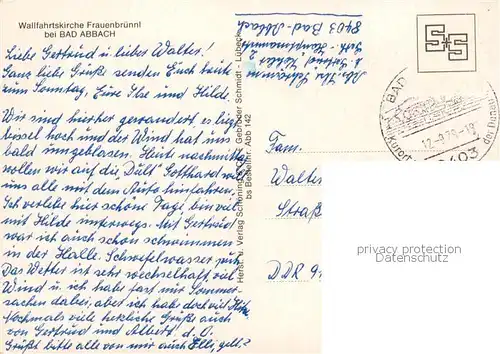 Wallfahrtskirche Frauenbrünnl
bei BAD ABBACH
Liebe Gertrud u. liebes Walter!
Ganz liebe Grüße senden Euch heute
zum Sonntag, Eure Ilse und Hilde.
Wir sind hierher gewandert, es liegt
bissel hoch und der Wind hat uns
bald umgeblasen. Heut nachmittag
wollen wir auf die Dult. Gotthard will
uns alle mit dem Auto hinfahren.
Ich verlebe hier schöne Tage, bin viel
mit Hilde unterwegs. Mit Gertrud
war ich auch schon schwimmen
in der Halle. Schwefelwasser pur.
Das Wetter ist sehr wechselhaft viel
Wind u. ich habe fast nur Sommer-
sachen dabei, aber ich habe doch viel
Nochmals viele herzliche Grüße auch
von Gertrud und Albert. d. O.
Grüßt bitte alle von mir auch Elli, gell?
Herst. u. Verlag Schöning & Co + Gebrüder Schmidt - Lübeck
bs Bestellnr. Abb 142
8403 Bad-Abbach
Fam.
Walter
Straß
DDR 9
S+S
BAD
KURORT
12.-9.76-1
8403
privacy protection
Datenschutz